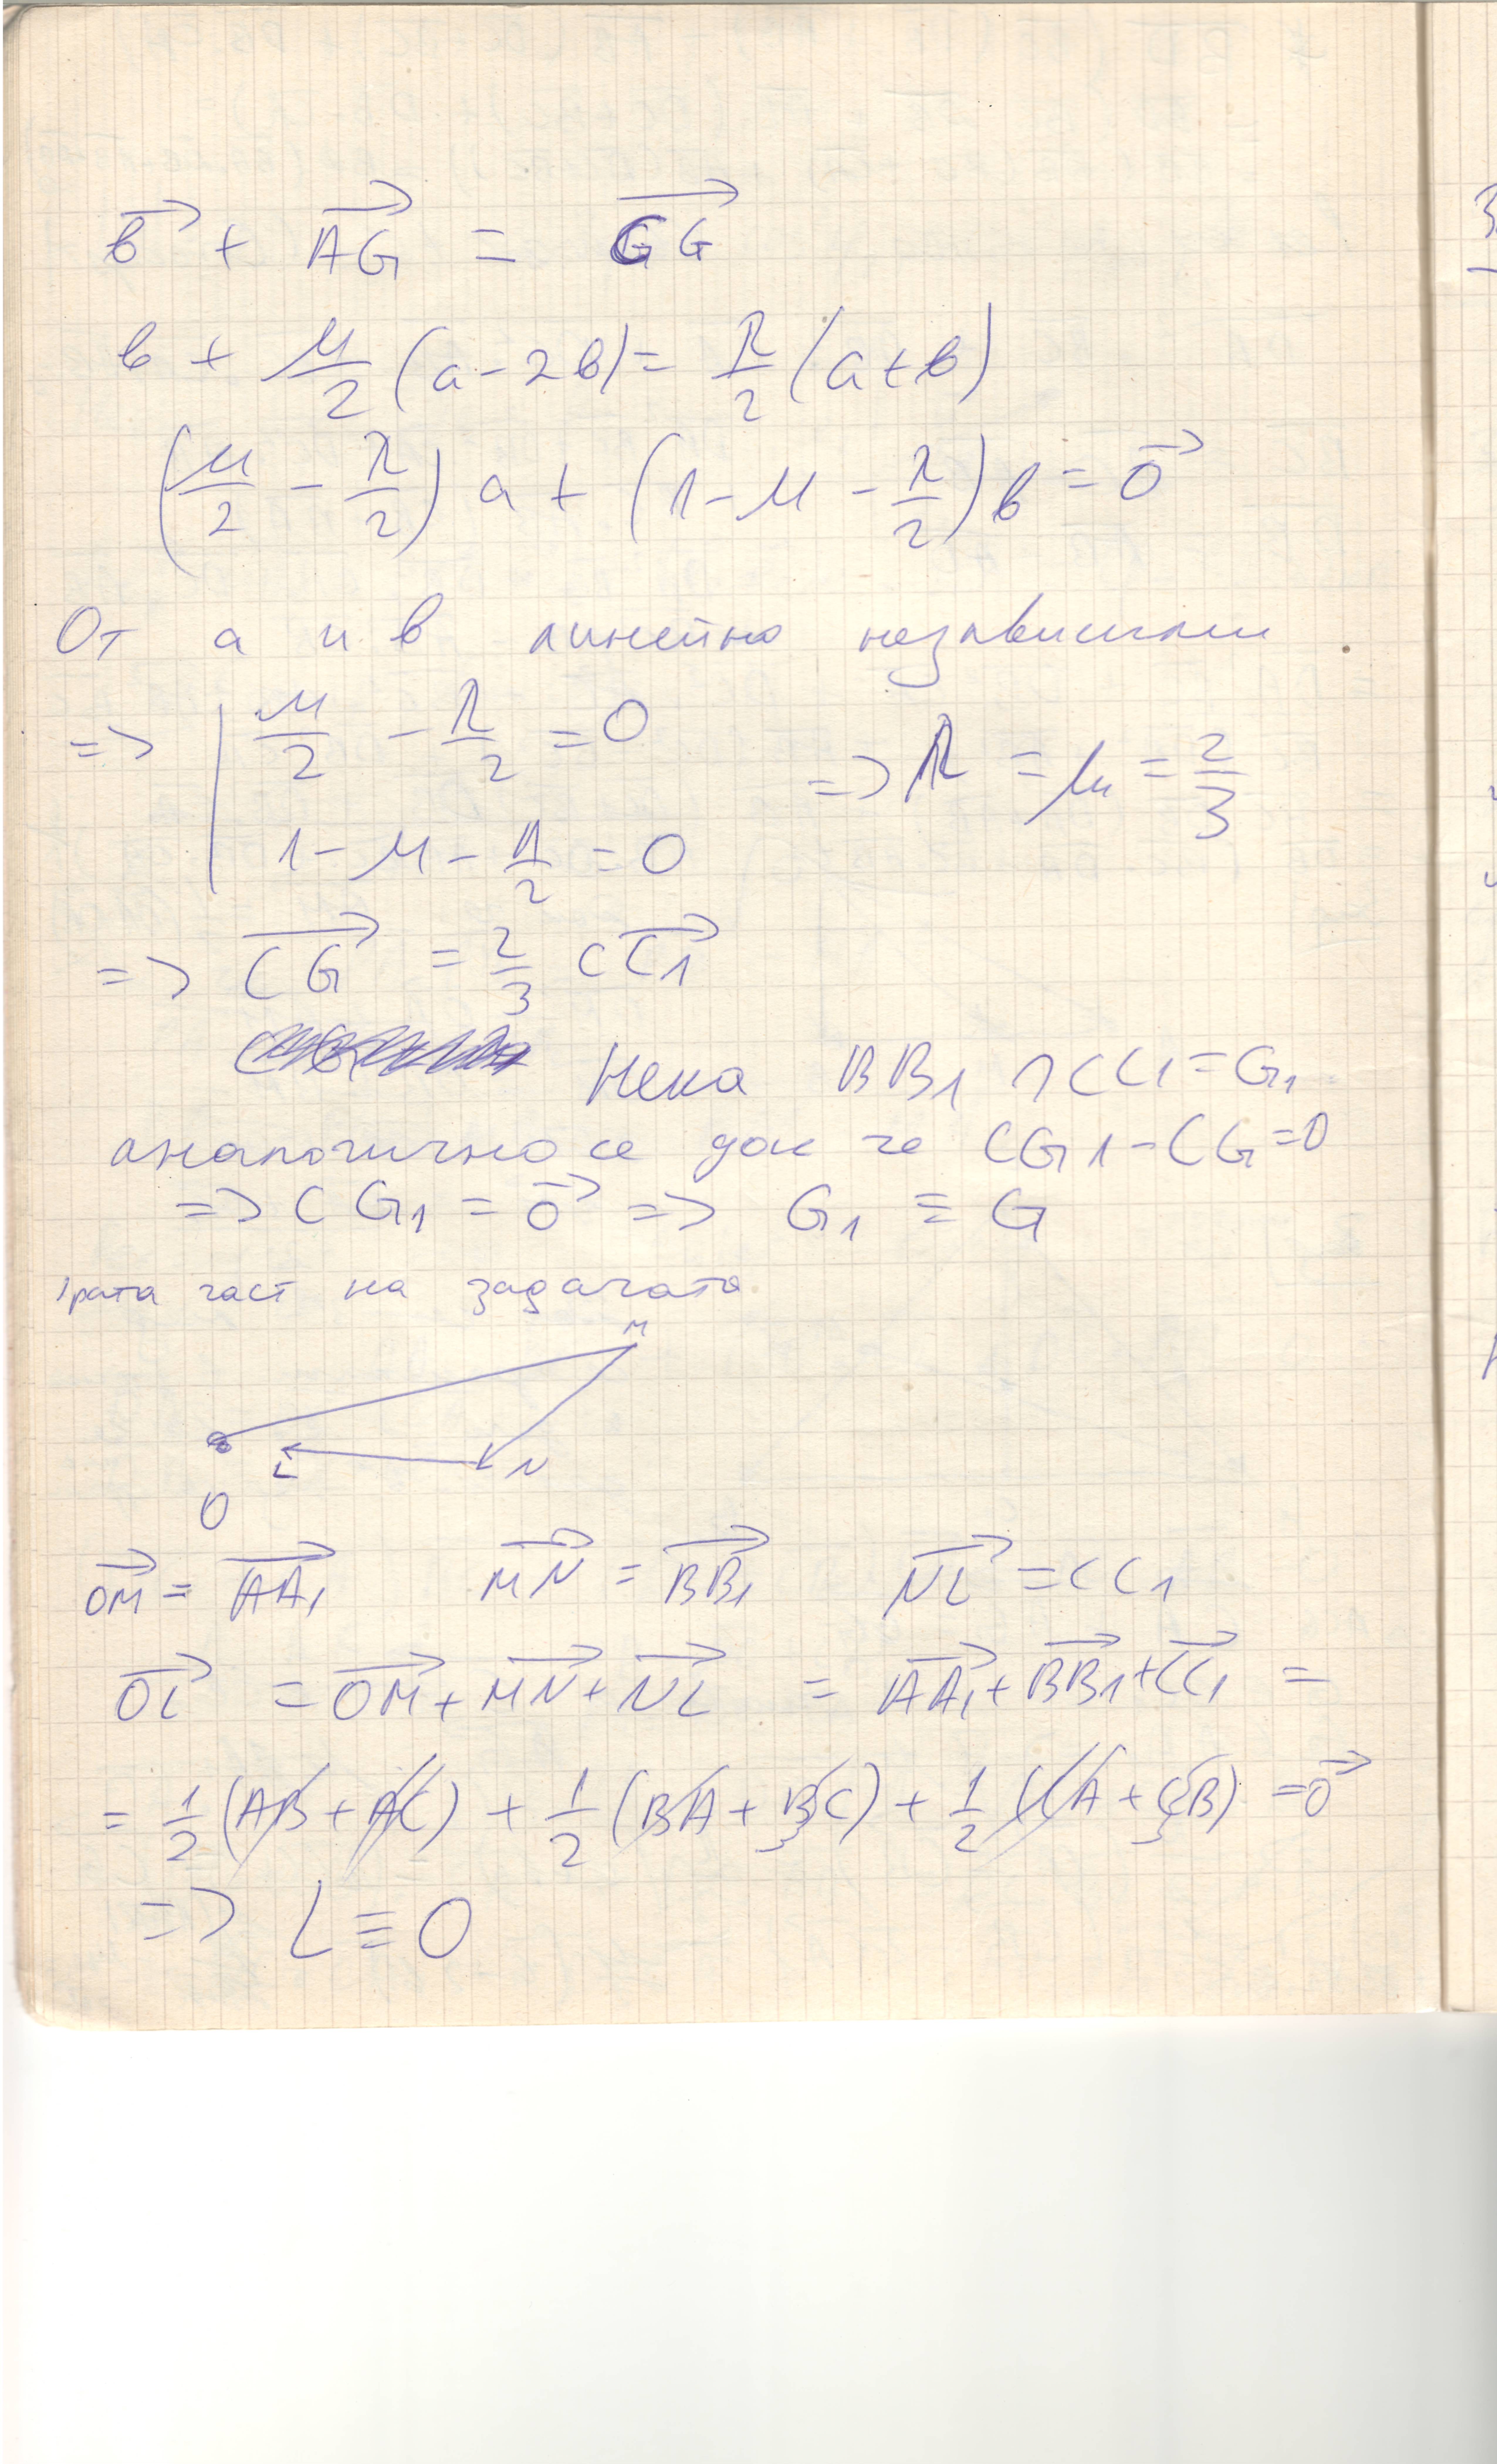 b⃗ + AG⃗ = CG⃗
b + μ/2 (a - 2b) = λ/2 (a + b)
(μ/2 - λ/2) a + (1 - μ - λ/2) b = 0⃗
От a и b линейно независими
=> | μ/2 - λ/2 = 0 => λ = μ = 2/3
1 - μ - λ/2 = 0
=> CG⃗ = 2/3 CC1⃗
Нека BB1 ∩ CC1 = G1
аналогично се док че CG1 - CG = 0
=> CG1 = 0⃗ => G1 ≡ G
част на задачата
M
L N
O
OM⃗ = AA1⃗ MN⃗ = BB1⃗ NL⃗ = CC1
OL⃗ = OM⃗ + MN⃗ + NL⃗ = AA1⃗ + BB1⃗ + CC1⃗ =
= 1/2 (AB + AC) + 1/2 (BA + BC) + 1/2 (CA + CB) = 0⃗
=> L ≡ O